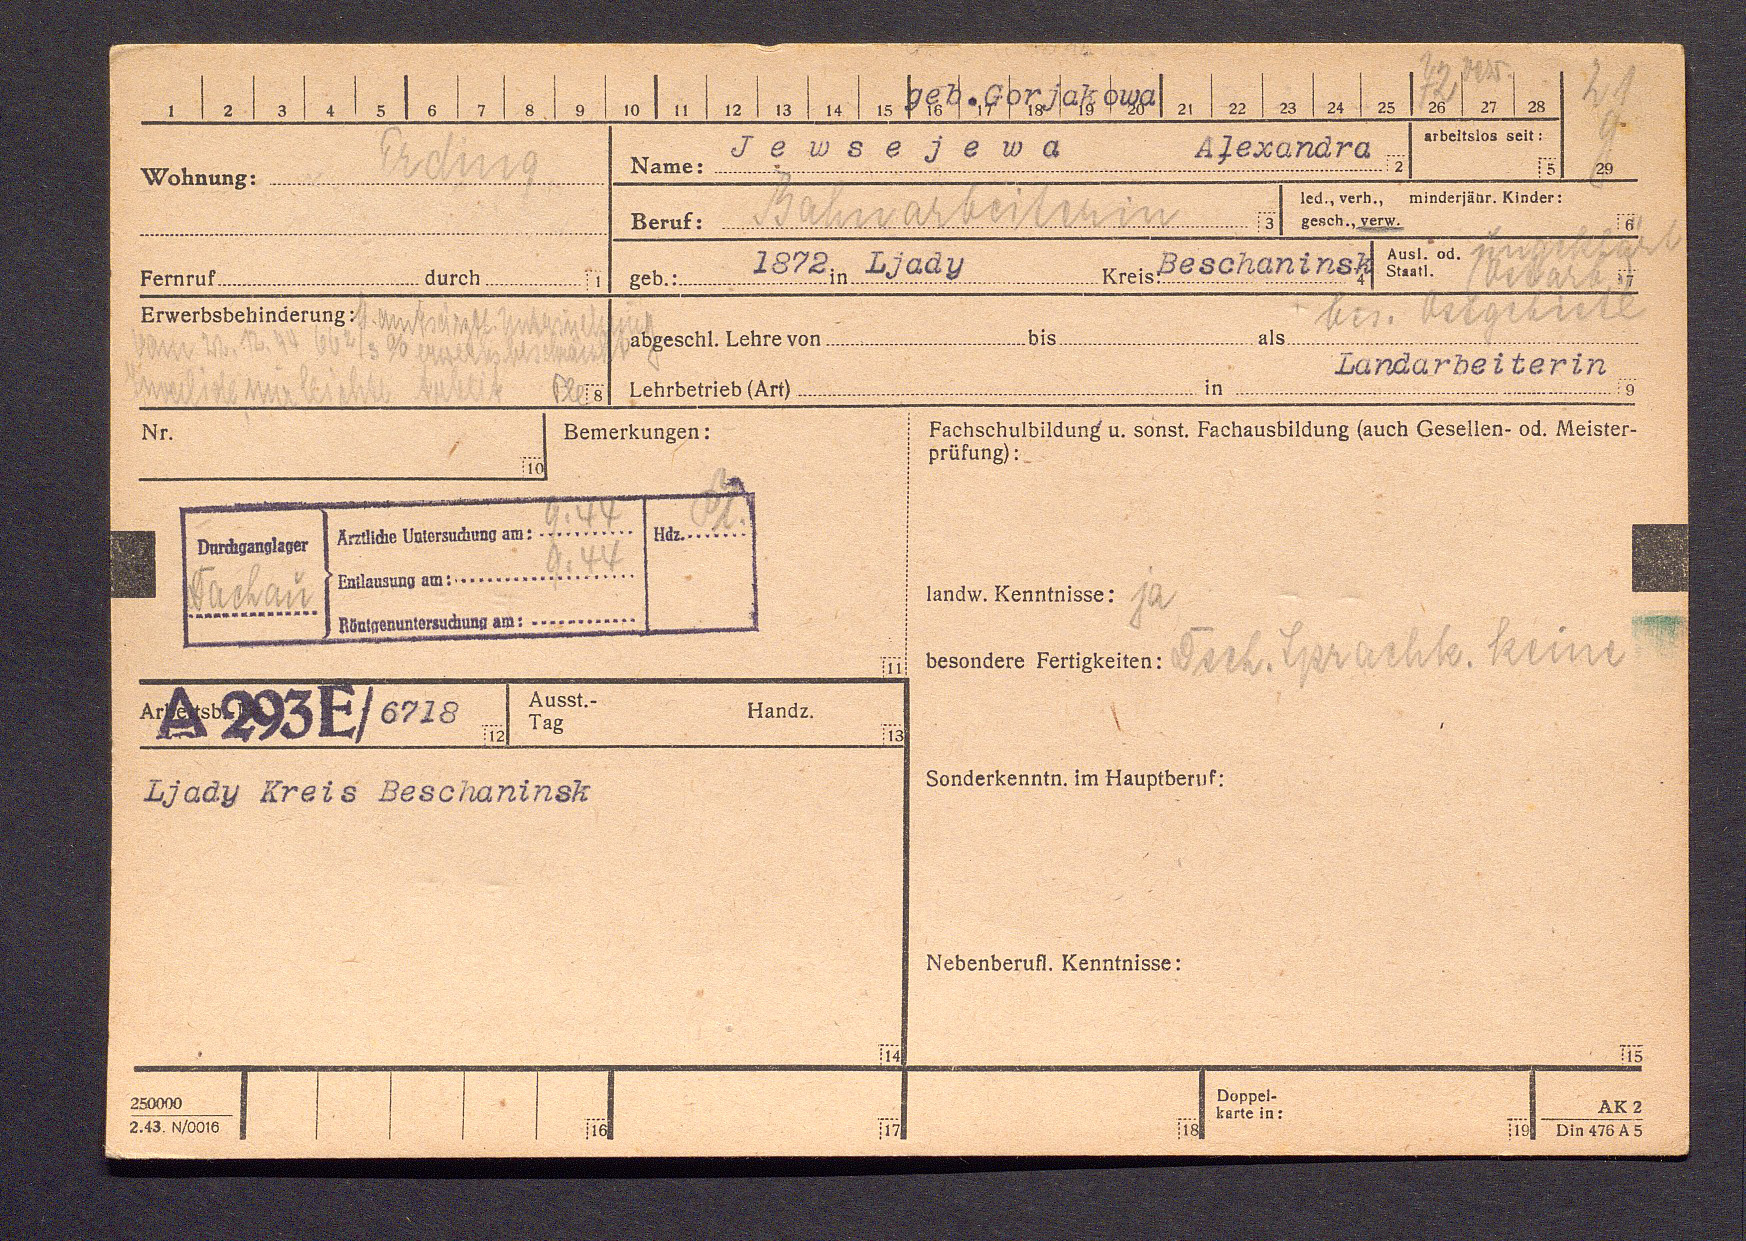 geb. Gorjakowa
72 verw.
21
1 2 3 4 5 6 7 8 9 10 11 12 13 14 15 16 17 18 19 20 21 22 23 24 25 26 27 28
9
Wohnung: Erding
Name: Jewsejewa Alexandra 2
arbeitslos seit: 5
29
6
Beruf: Bahnarbeiterin 3
led., verh., minderjähr. Kinder:
gesch., verw. 6
Fernruf durch 1
geb.: 1872 in Ljady Kreis: Beschaninsk 4
Ausl. od. ungeklärt
Staatl. Ostarb. 7
bes. Ostgebiete
Erwerbsbehinderung: lt. amtsärztl. Untersuchung
vom 22.12.44 66 2/3 % erwerbsbeschränkt
nur leichte Arbeit 8
abgeschl. Lehre von bis als
Landarbeiterin
Lehrbetrieb (Art) in 9
Nr. 10
Bemerkungen:
Fachschulbildung u. sonst. Fachausbildung (auch Gesellen- od. Meister-
prüfung):
Durchganglager
Dachau
Ärztliche Untersuchung am: 9.44
Hdz.
Entlausung am: 9.44
Röntgenuntersuchung am:
11
landw. Kenntnisse: ja
besondere Fertigkeiten: Dtsch. Sprachk. keine
Arbeitsb. A 293E/ 6718 12
Ausst.-
Tag
Handz. 13
Ljady Kreis Beschaninsk
14
Sonderkenntn. im Hauptberuf:
Nebenberufl. Kenntnisse:
15
250000
2.43. N/0016
16 17 18
Doppel-
karte in: 19
AK 2
Din 476 A 5